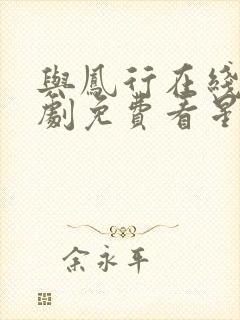 與鳳行在綫
劇免費看星
余永平